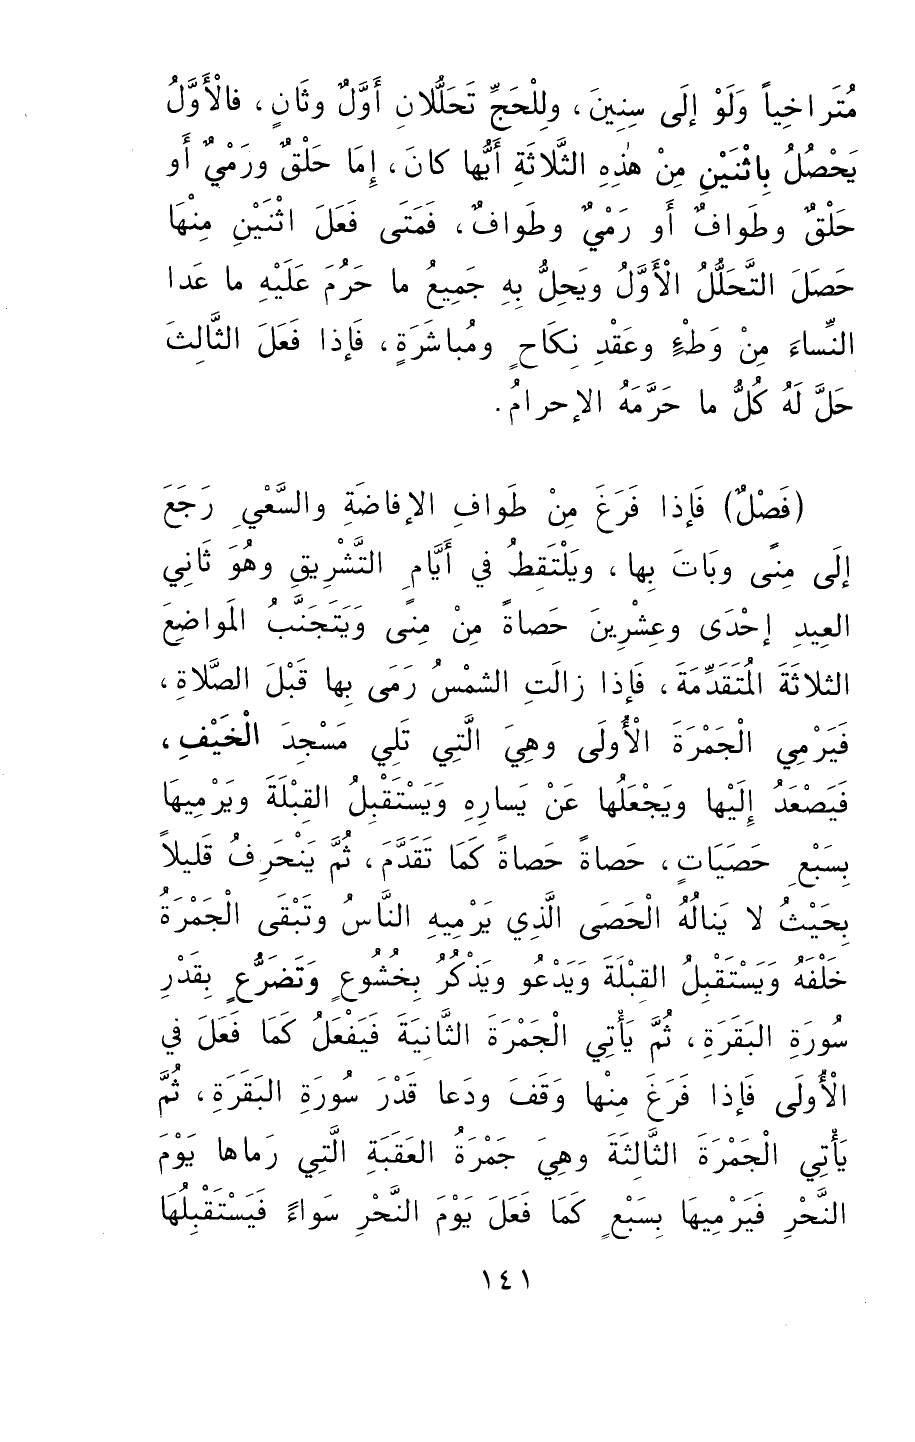 مُتَراخِياً وَلَوْ إلَى سِنِينَ، وللْحَجِّ تَحَلُّلانِ أَوَّلٌ وثَانٍ، فالْأَوَّلُ
يَحْصُلُ بِاثْنَيْنِ مِنْ هٰذِهِ الثَّلاثَةِ أَيُّها كانَ، إمَا حَلْقٌ ورَمْيٌ أَو
حَلْقٌ وطَوافٌ أَو رَمْيٌ وطَوافٌ، فَمَتَى فَعَلَ اثْنَيْنِ مِنْهَا
حَصَلَ التَّحَلُّلُ الْأَوَّلُ ويَحِلُّ بِهِ جَمِيعُ ما حَرُمَ عَلَيْهِ ما عَدا
النِّساءَ مِنْ وَطْءٍ وعَقْدِ نِكَاحٍ ومُباشَرَةٍ، فَإذا فَعَلَ الثَّالِثَ
حَلَّ لَهُ كُلُّ ما حَرَّمَهُ الإحرامُ.
(فَصْلٌ) فَإذا فَرَغَ مِنْ طَوافِ الإفاضَةِ والسَّعْيِ رَجَعَ
إلَى مِنًى وبَاتَ بِها، ويَلْتَقِطُ في أَيَّامِ التَّشْرِيقِ وهُوَ ثَانِي
العِيدِ إحْدَى وعِشْرِينَ حَصاةً مِنْ مِنًى وَيَتَجَنَّبُ المَواضِعَ
الثلاثَةَ المُتَقَدِّمَةَ، فَإذا زالَتِ الشمْسُ رَمَى بِها قَبْلَ الصَّلاةِ،
فَيَرْمِي الْجَمْرَةَ الْأُولَى وهِيَ الَّتِي تَلِي مَسْجِدَ الْخَيْفِ،
فَيَصْعَدُ إِلَيْها ويَجْعَلُها عَنْ يَسارِهِ وَيَسْتَقْبِلُ القِبْلَةَ ويَرْمِيهَا
بِسَبْعِ حَصَيَاتٍ، حَصاةً حَصاةً كَمَا تَقَدَّمَ، ثُمَّ يَنْحَرِفُ قَلِيلاً
بِحَيْثُ لا يَنالُهُ الْحَصَى الَّذِي يَرْمِيهِ النَّاسُ وتَبْقَى الْجَمْرَةُ
خَلْفَهُ وَيَسْتَقْبِلُ القِبْلَةَ وَيَدْعُو ويَذْكُرُ بِخُشُوعٍ وَتَضرُّعٍ بِقَدْرِ
سُورَةِ البَقَرَةِ، ثُمَّ يَأْتِي الْجَمْرَةَ الثَّانِيَةَ فَيَفْعَلُ كَمَا فَعَلَ في
الْأُولَى فَإذا فَرَغَ مِنْها وَقَفَ ودَعا قَدْرَ سُورَةِ البَقَرَةِ، ثُمَّ
يَأْتِي الْجَمْرَةَ الثَّالِثَةَ وهِيَ جَمْرَةُ العَقَبَةِ الَّتِي رَماها يَوْمَ
النَّحْرِ فَيَرْمِيها بِسَبْعٍ كَمَا فَعَلَ يَوْمَ النَّحْرِ سَواءً فَيَسْتَقْبِلُهَا
١٤١